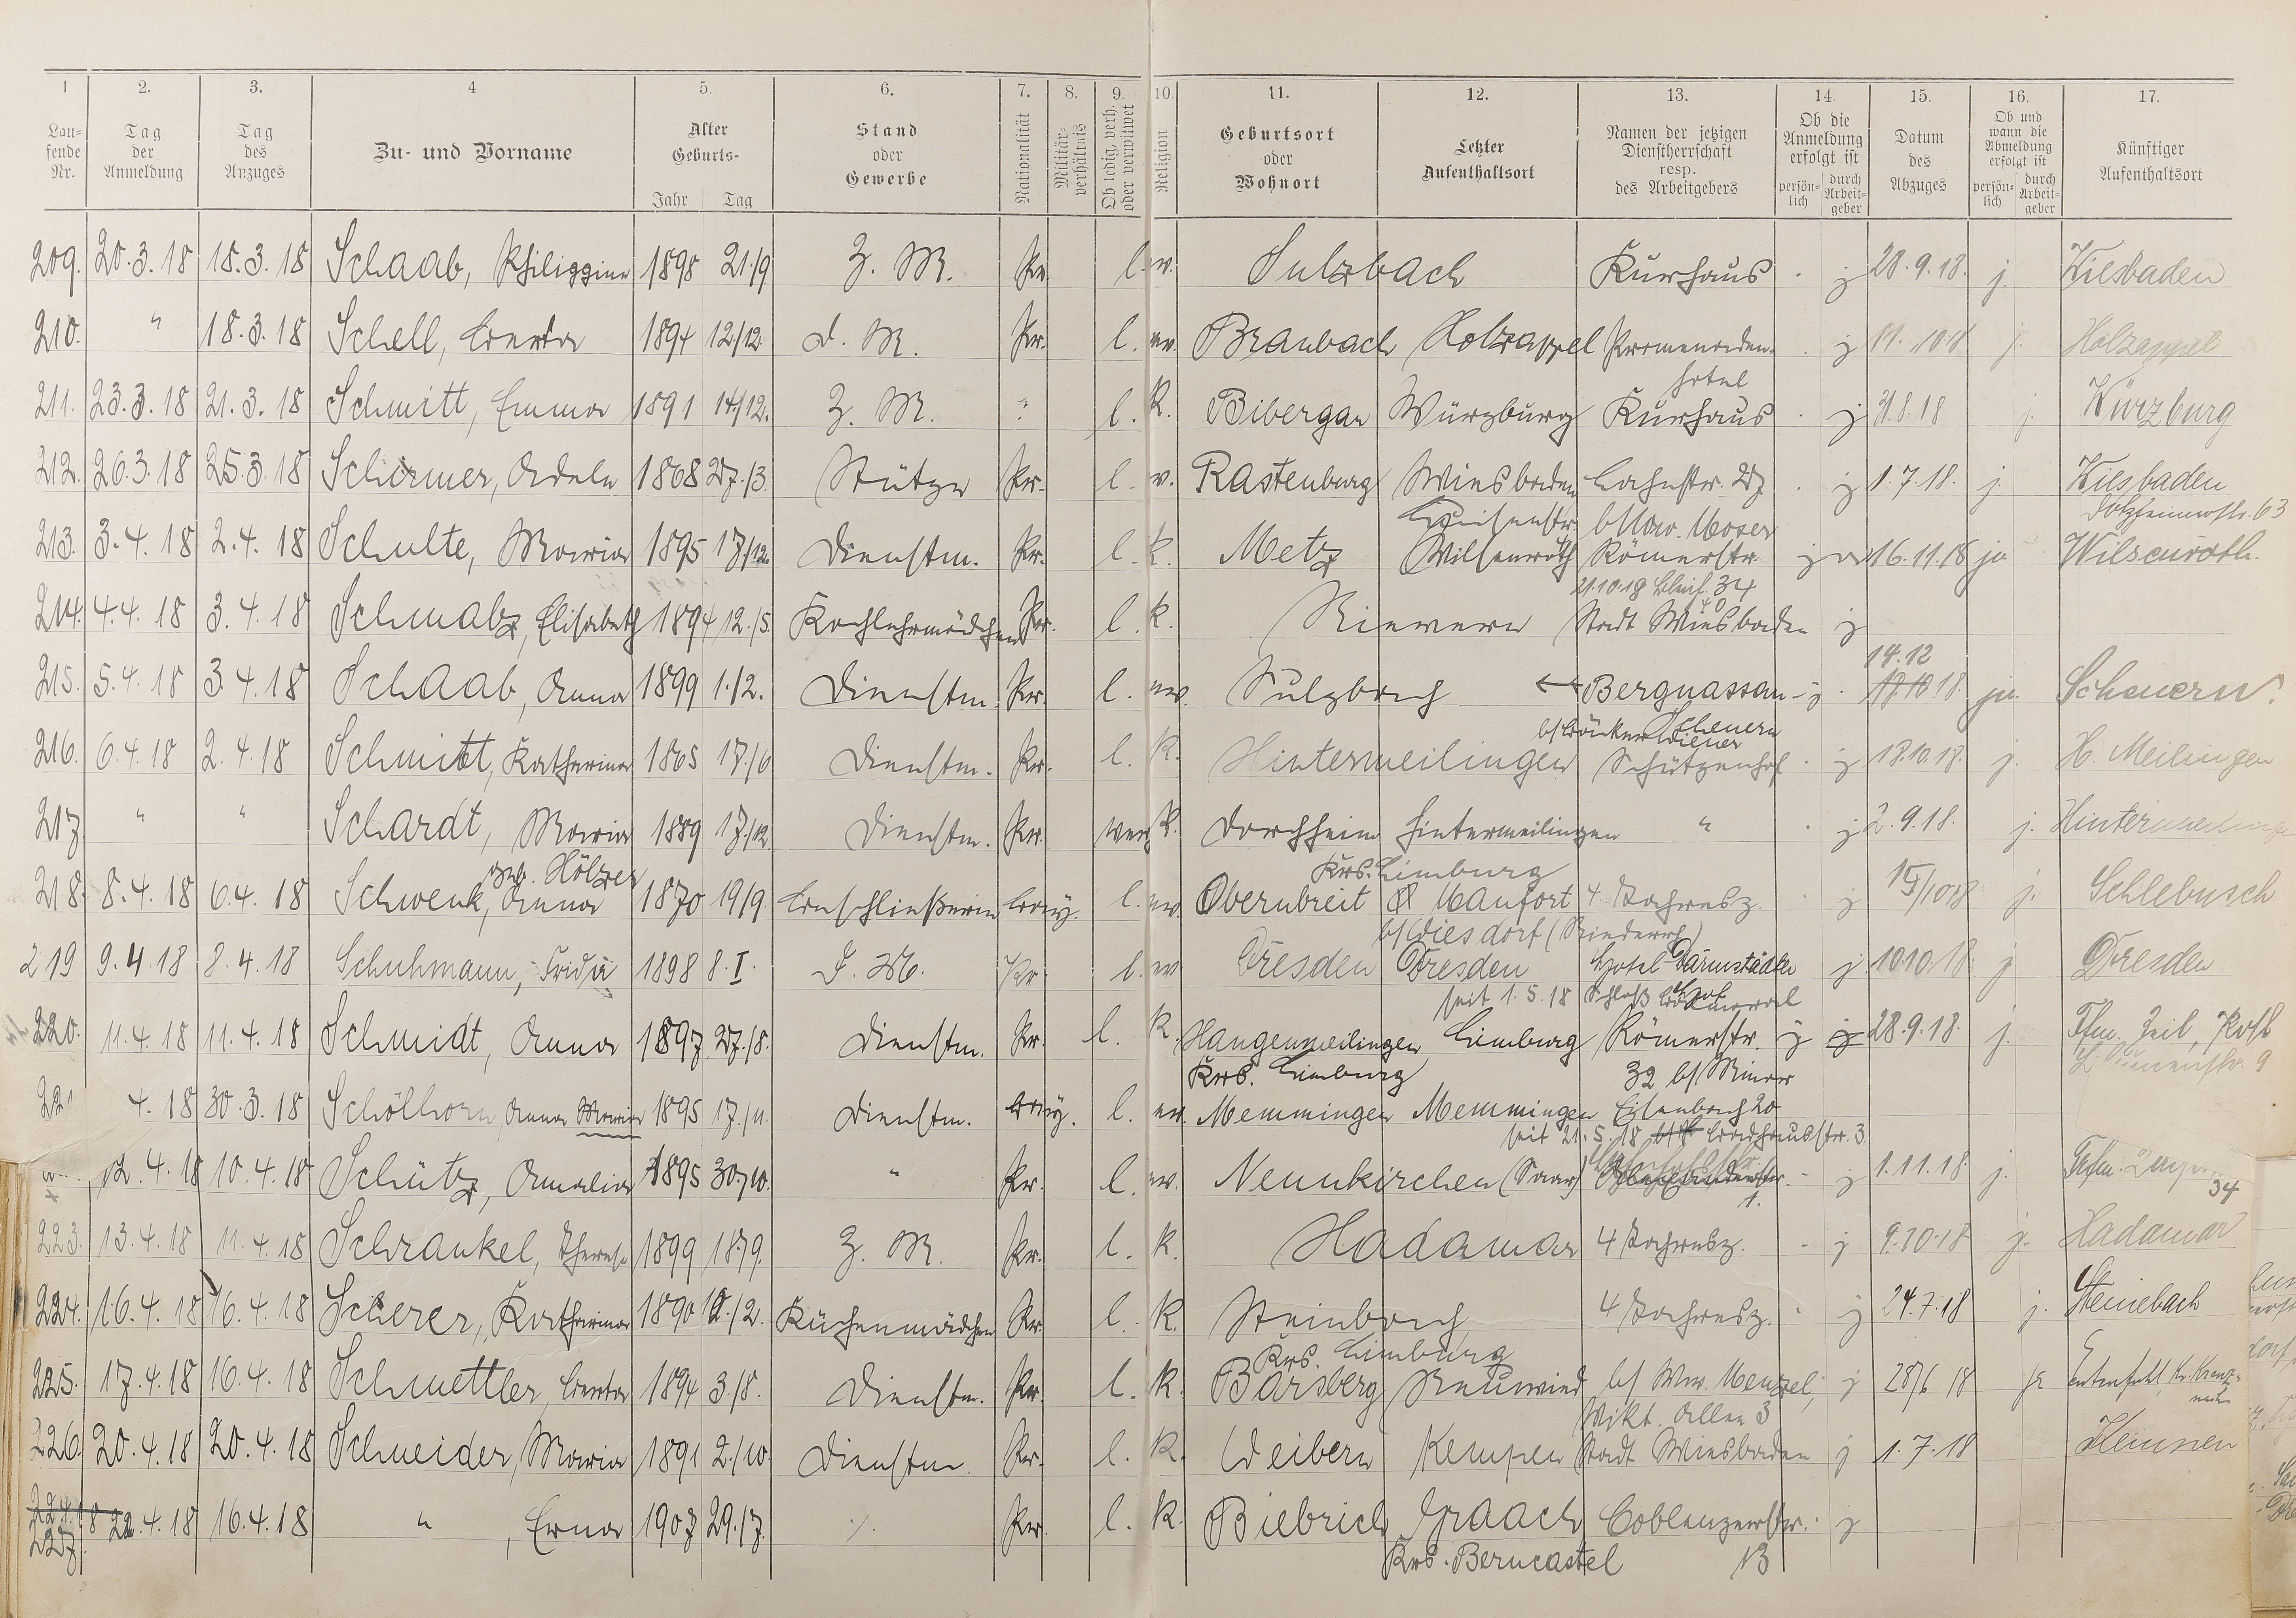 1 2. 3. 4 5. 6. 7. 8. 9. 10. 11. 12. 13. 14. 15. 16. 17.
Lau-fende Nr. Tag der Anmeldung Tag des Anzuges Zu- und Vorname Alter Geburts- Jahr Tag Stand oder Gewerbe Nationalität Militär-verhältnis Ob ledig, verh. oder verwitwet Religion Geburtsort oder Wohnort Letzter Aufenthaltsort Namen der jetzigen Dienstherrschaft resp. des Arbeitgebers Ob die Anmeldung erfolgt ist persön-lich durch Arbeit-geber Datum des Abzuges Ob und wann die Abmeldung erfolgt ist persön-lich durch Arbeit-geber Künftiger Aufenthaltsort
209. 20.3.18 18.3.18 Schaab, Philippine 1898 21./9 Z. M. Pr. l. ev. Sulzbach Kurhaus j 28.9.18. j. Wiesbaden
210. " 18.3.18 Schell, Berta 1894 12/12. d. M. Pr. l. ev. Braubach Holzappel Promenaden- j j. Holzappel
hotel
211. 23.3.18 21.3.18 Schmitt, Emma 1891 14/12. Z. M. " l. K. Bibergau Würzburg Kurhaus j 31.8.18 j. Würzburg
212. 26.3.18 25.3.18 Schirmer, Adele 1868 27./3. Stütze Pr. l. ev. Rastenburg Wiesbaden Lahnstr. 27 j 1.7.18. j. Wiesbaden
Luisenstr. b/ Ww. Moser Dotzheimerstr. 63
213. 3.4.18 2.4.18 Schulte, Maria 1895 17./12. Dienstm. Pr. l. k. Metz Wilsenroth Römerstr. j 16.11.18 ja Wilsenroth.
21.10.18 34
214. 4.4.18 3.4.18 Schmalz, Elisabeth 1894 12./5. Kochlehrmädchen Pr. l. k. Nievern Stadt Wiesbaden j
14.12
215. 5.4.18 3.4.18 Schaab, Anna 1899 1./2. Dienstm. Pr. l. ev. Sulzbach Bergnassau- j 18.10.18. ja. Scheuern.
b/ Bäcker Wiener Scheuern
216. 6.4.18 2.4.18 Schmitt, Katharina 1865 17./6 Dienstm. Pr. l. K. Hintermeilingen Schützenhof j 18.10.18. j. H. Meilingen
217 " " Schardt, Maria 1889 17./12. Dienstm. Pr. verw. k. Dorchheim Hintermeilingen " j 2.9.18. j. Hintermeilingen
geb. Hölzer Krs. Limburg
218. 8.4.18 6.4.18 Schwenk, Anna 1870 19/9. Beschließerin Bay. l. ev. Obernbreit Manfort 4 Jahresz. j 15/10 18 j. Schlebusch
b/ Wiesdorf (Niederrh)
219 9.4.18 8.4.18 Schuhmann, Frida 1898 8.I. Z. M. Pr. l. ev Dresden Dresden Hotel Darmstädter j 10.10.18 j Dresden
seit 1.5.18 Schloß Hof
220. 11.4.18 11.4.18 Schmidt, Anna 1897 27./8. Dienstm. Pr. l. K. Hangenmeilingen Limburg Römerstr. j j 28.9.18. j. Ffm. Zeil, Post
Krs. Limburg 32 b/ Minor 9
221 4.18 30.3.18 Schölhorn, Anna Maria 1895 17./11. Dienstm. Bay. l. ev. Memmingen Memmingen Eisenbach 20
seit 21.5.18 Badhausstr. 3
12.4.18 10.4.18 Schütz, Amalia 1895 30./10. " Pr. l. ev. Neunkirchen (Saar) j 1.11.18. j. Frkfm.
1. 34
223. 13.4.18 11.4.18 Schrankel, Therese 1899 18./9. Z. M. Pr. l. K. Hadamar 4 Jahresz. j 9.10.18 j. Hadamar
224. 16.4.18 16.4.18 Scherer, Katharina 1890 12./2. Küchenmädchen Pr. l. K. Steinbach 4 Jahresz. j 24.7.18 j. Steinebach
Krs. Limburg
225. 17.4.18 16.4.18 Schmettler, Berta 1894 3./8. Dienstm. Pr. l. K. Barsberg Neuwied b/ Ww. Menzel, j 28/6 18 ja Entenpfuhl, Kr. Kreuz-nach
Vikt. Allee 3
226. 20.4.18 20.4.18 Schneider, Maria 1891 2./10. Dienstm. Pr. l. K. Weibern Kempen Stadt Wiesbaden j 1.7.18 Kempen
22.4.18
227. 22.4.18 16.4.18 " , Erna 1907 29./7. ./. Pr. l. K. Biebrich Graach Coblenzerstr. j
Krs. Berncastel 13